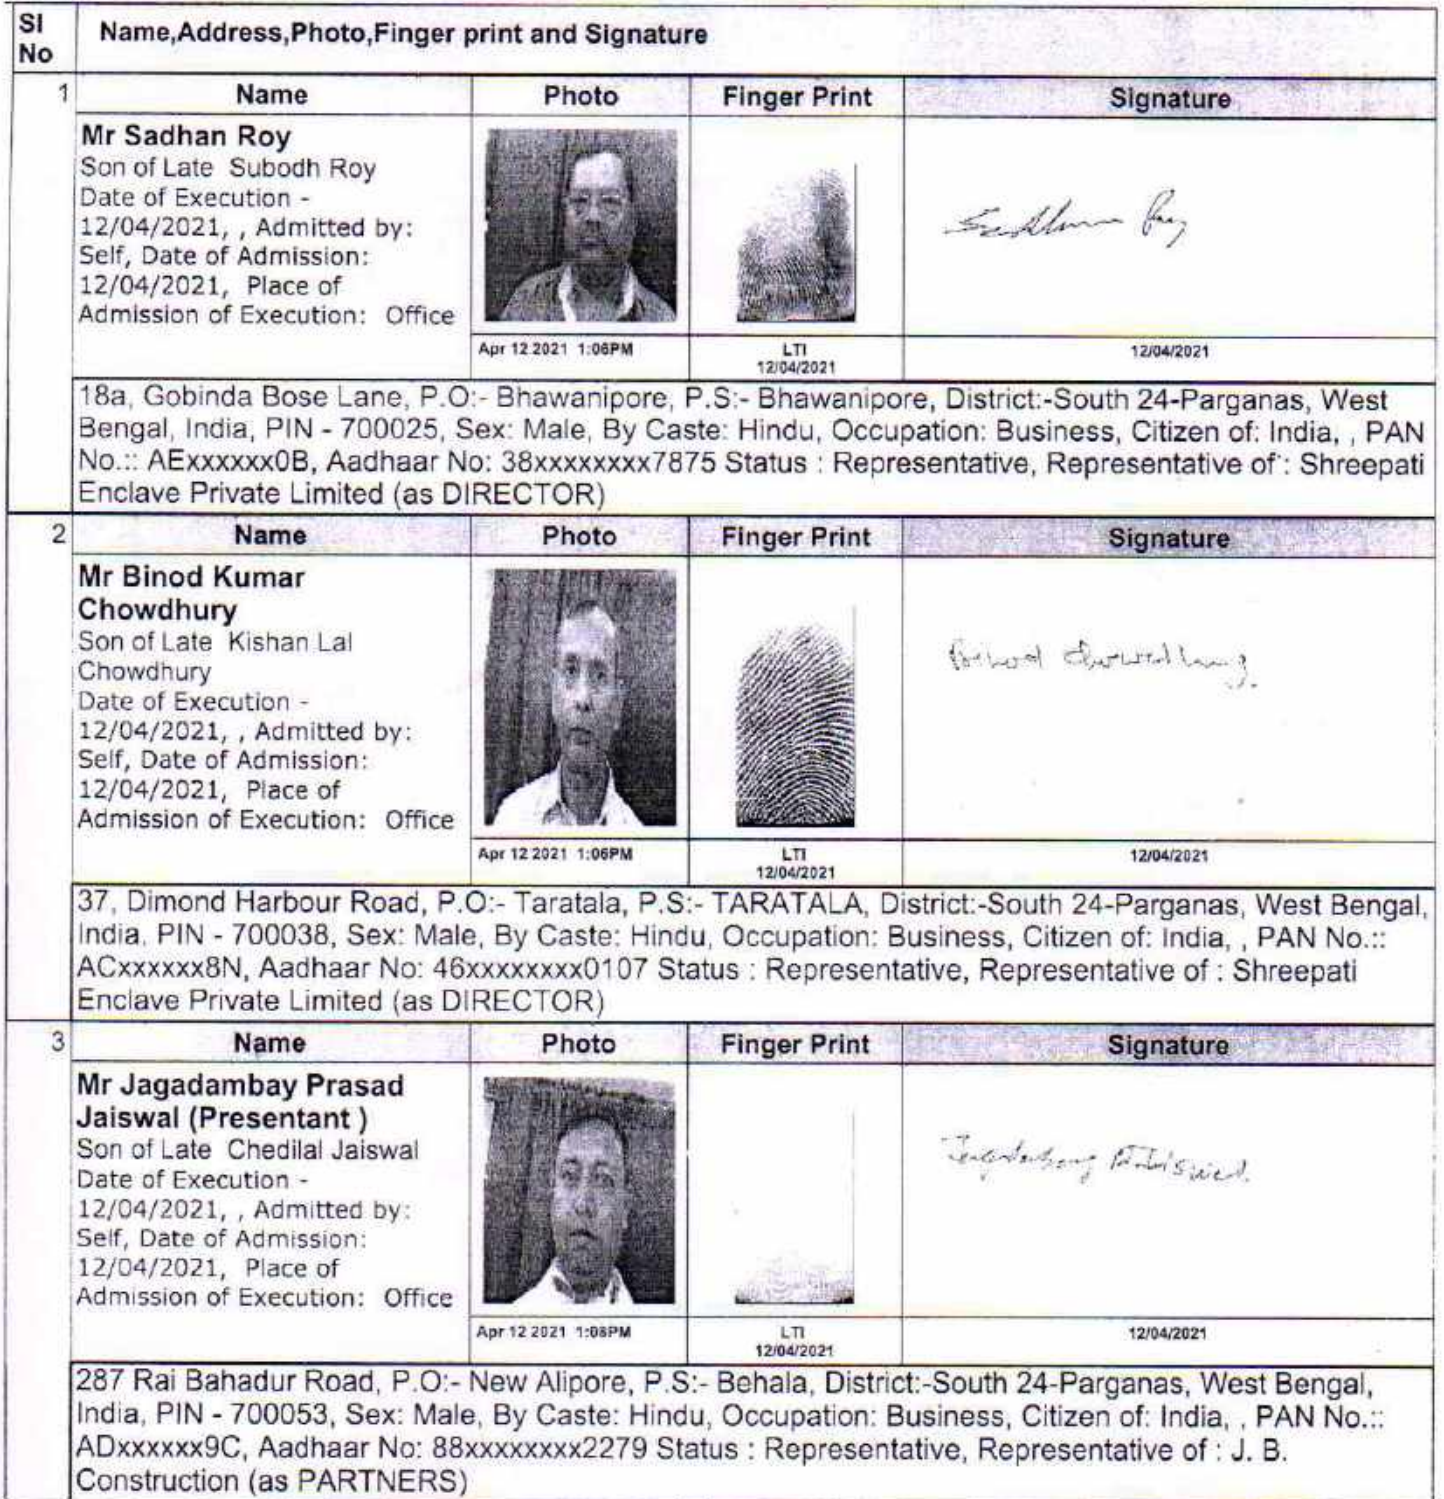 Sl No
Name,Address,Photo,Finger print and Signature
1
Name Photo Finger Print Signature
Mr Sadhan Roy
Son of Late Subodh Roy
Date of Execution -
12/04/2021, , Admitted by:
Self, Date of Admission:
12/04/2021, Place of
Admission of Execution: Office
Apr 12 2021 1:06PM
LTI
12/04/2021
Sadhan Roy
12/04/2021
18a, Gobinda Bose Lane, P.O:- Bhawanipore, P.S:- Bhawanipore, District:-South 24-Parganas, West
Bengal, India, PIN - 700025, Sex: Male, By Caste: Hindu, Occupation: Business, Citizen of: India, , PAN
No.:: AExxxxxx0B, Aadhaar No: 38xxxxxxxx7875 Status : Representative, Representative of : Shreepati
Enclave Private Limited (as DIRECTOR)
2
Name Photo Finger Print Signature
Mr Binod Kumar
Chowdhury
Son of Late Kishan Lal
Chowdhury
Date of Execution -
12/04/2021, , Admitted by:
Self, Date of Admission:
12/04/2021, Place of
Admission of Execution: Office
Apr 12 2021 1:06PM
LTI
12/04/2021
Binod Chowdhury
12/04/2021
37, Dimond Harbour Road, P.O:- Taratala, P.S:- TARATALA, District:-South 24-Parganas, West Bengal,
India, PIN - 700038, Sex: Male, By Caste: Hindu, Occupation: Business, Citizen of: India, , PAN No.::
ACxxxxxx8N, Aadhaar No: 46xxxxxxxx0107 Status : Representative, Representative of : Shreepati
Enclave Private Limited (as DIRECTOR)
3
Name Photo Finger Print Signature
Mr Jagadambay Prasad
Jaiswal (Presentant )
Son of Late Chedilal Jaiswal
Date of Execution -
12/04/2021, , Admitted by:
Self, Date of Admission:
12/04/2021, Place of
Admission of Execution: Office
Apr 12 2021 1:08PM
LTI
12/04/2021
12/04/2021
287 Rai Bahadur Road, P.O:- New Alipore, P.S:- Behala, District:-South 24-Parganas, West Bengal,
India, PIN - 700053, Sex: Male, By Caste: Hindu, Occupation: Business, Citizen of: India, , PAN No.::
ADxxxxxx9C, Aadhaar No: 88xxxxxxxx2279 Status : Representative, Representative of : J. B.
Construction (as PARTNERS)